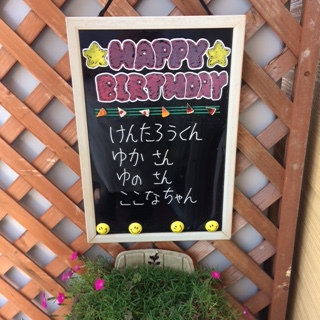 HAPPY
BIRTHDAY
けんたろうくん
ゆか さん
ゆの さん
ここなちゃん